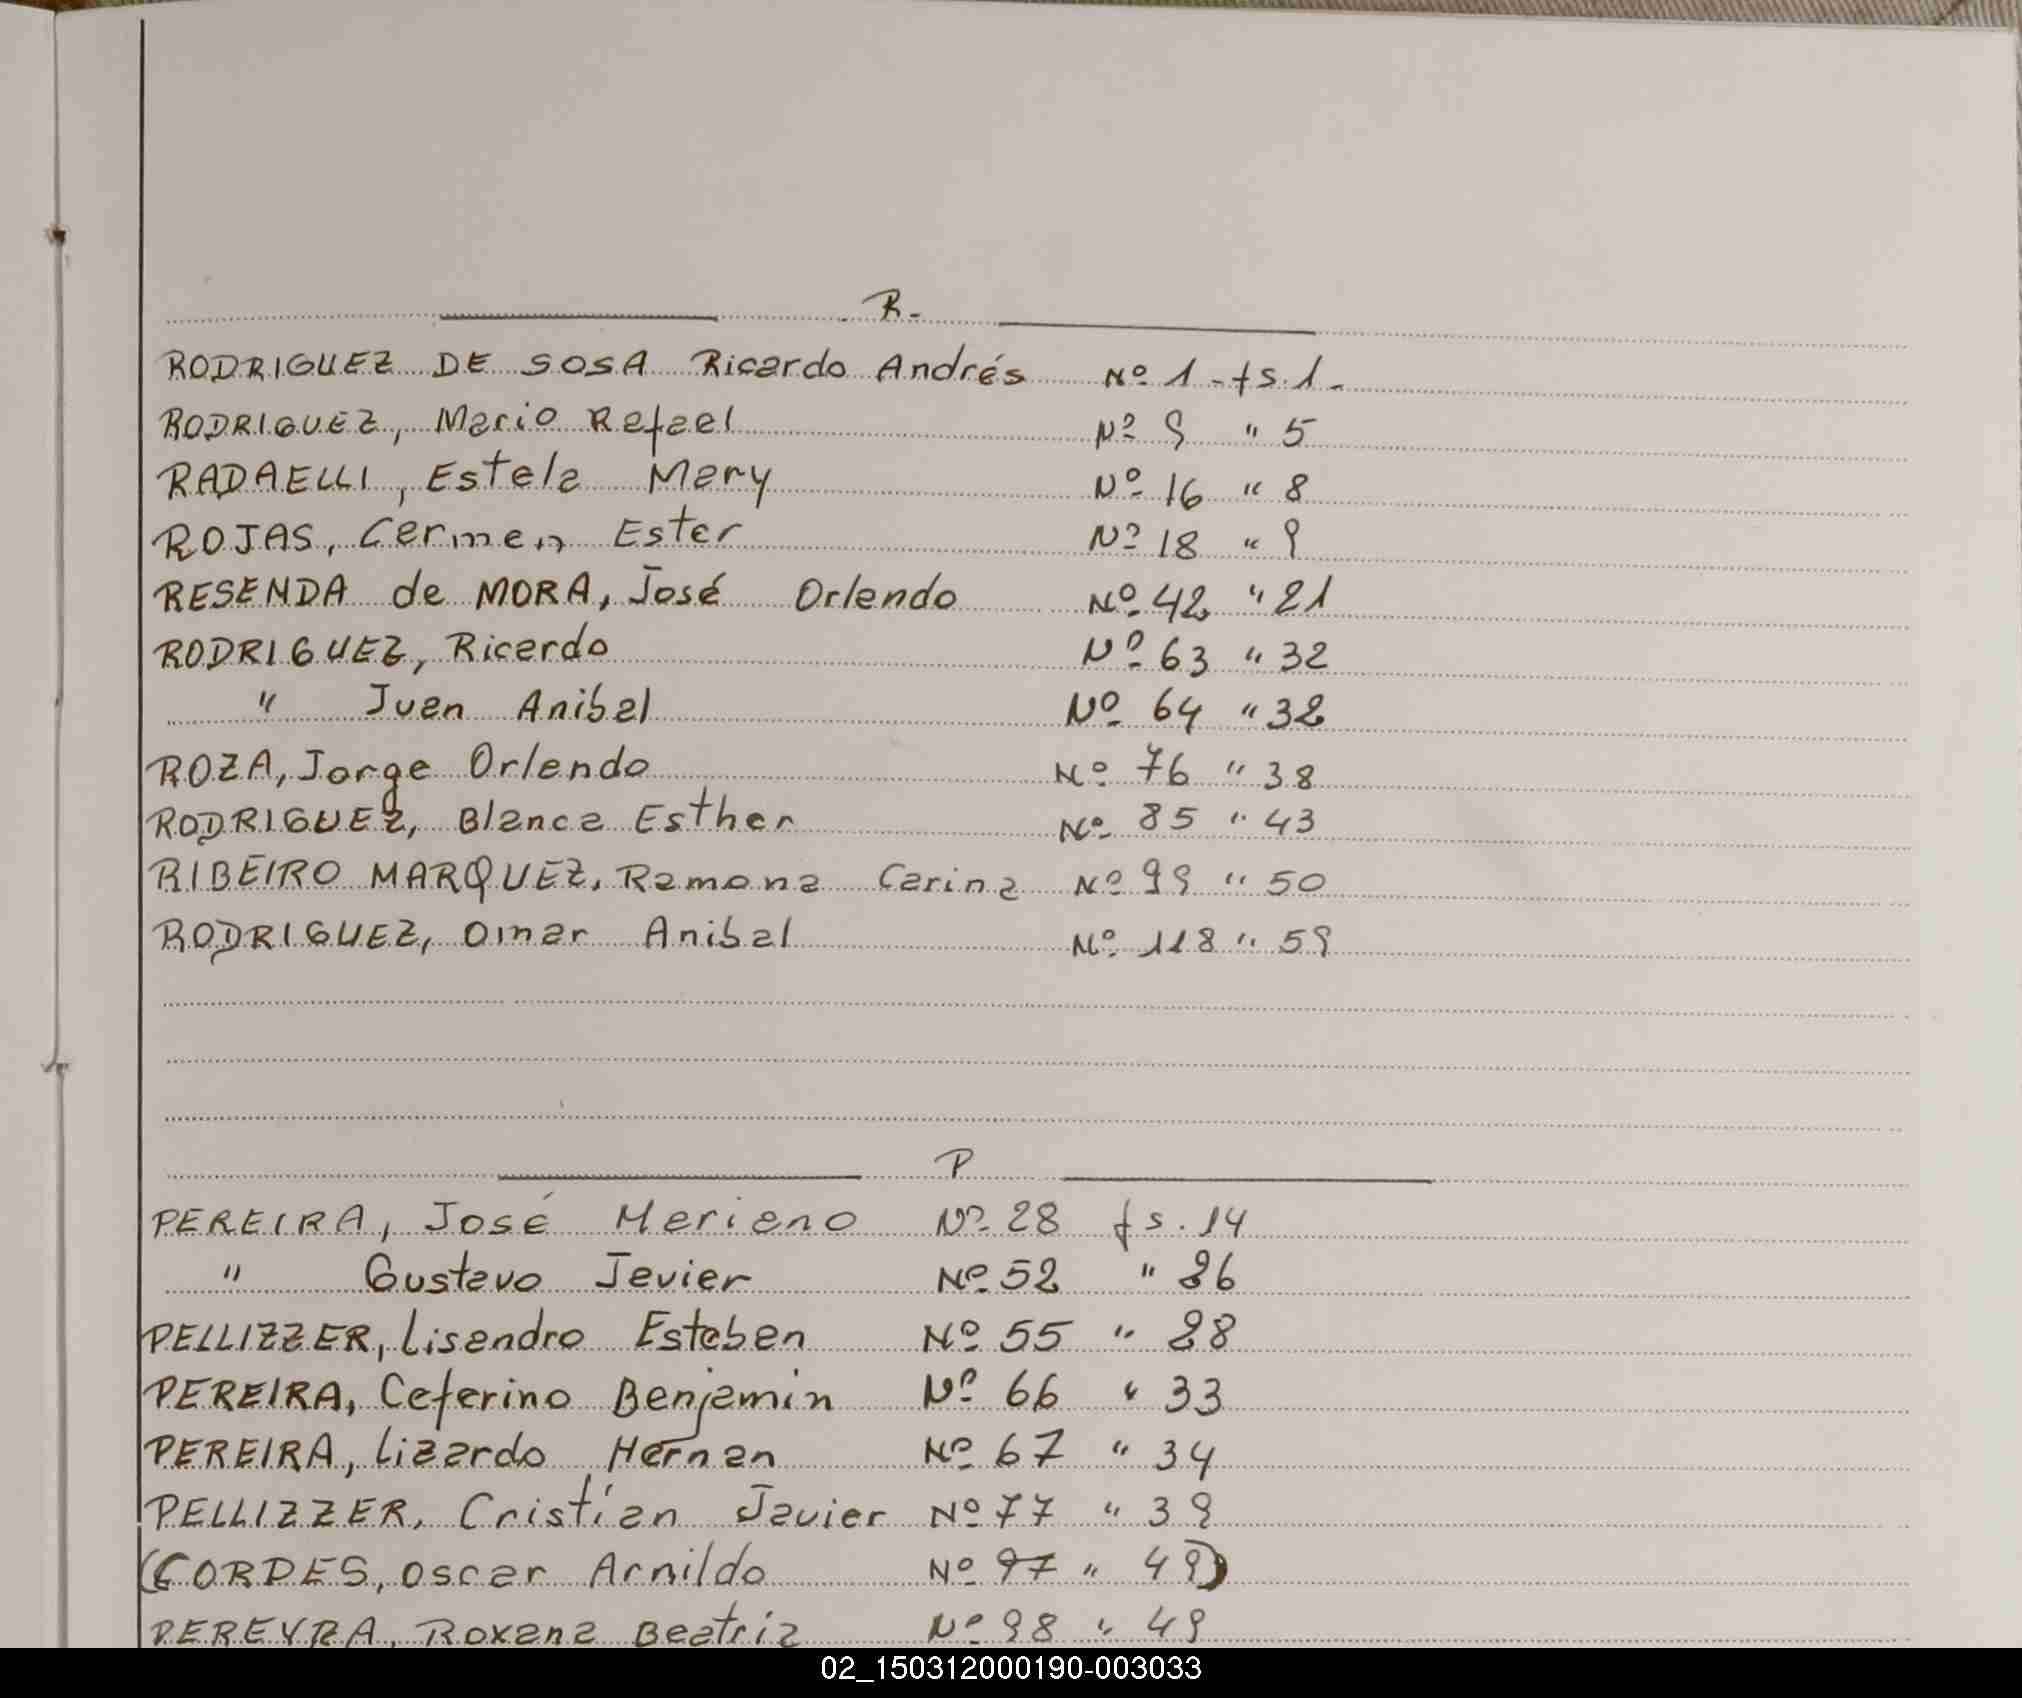 R.
RODRIGUEZ DE SOSA Ricardo Andrés Nº 1 - fs. 1.
RODRIGUEZ, Mario Rafael Nº 9 " 5
RADAELLI, Estela Mary Nº 16 " 8
ROJAS, Carmen Ester Nº 18 " 9
RESENDA de MORA, José Orlando Nº 42 " 21
RODRIGUEZ, Ricardo Nº 63 " 32
" Juan Anibal Nº 64 " 32
ROZA, Jorge Orlando Nº 76 " 38
RODRIGUEZ, Blanca Esther Nº 85 " 43
RIBEIRO MARQUEZ, Ramona Carina Nº 99 " 50
RODRIGUEZ, Omar Anibal Nº 118 " 59
P
PEREIRA, José Mariano Nº 28 fs. 14
" Gustavo Javier Nº 52 " 26
PELLIZZER, Lisandro Esteban Nº 55 " 28
PEREIRA, Ceferino Benjamin Nº 66 " 33
PEREIRA, Lizardo Hernan Nº 67 " 34
PELLIZZER, Cristían Javier Nº 77 " 39
(CORDES, Oscar Arnildo Nº 97 " 49)
PEREYRA, Roxana Beatriz Nº 98 " 49
02_150312000190-003033